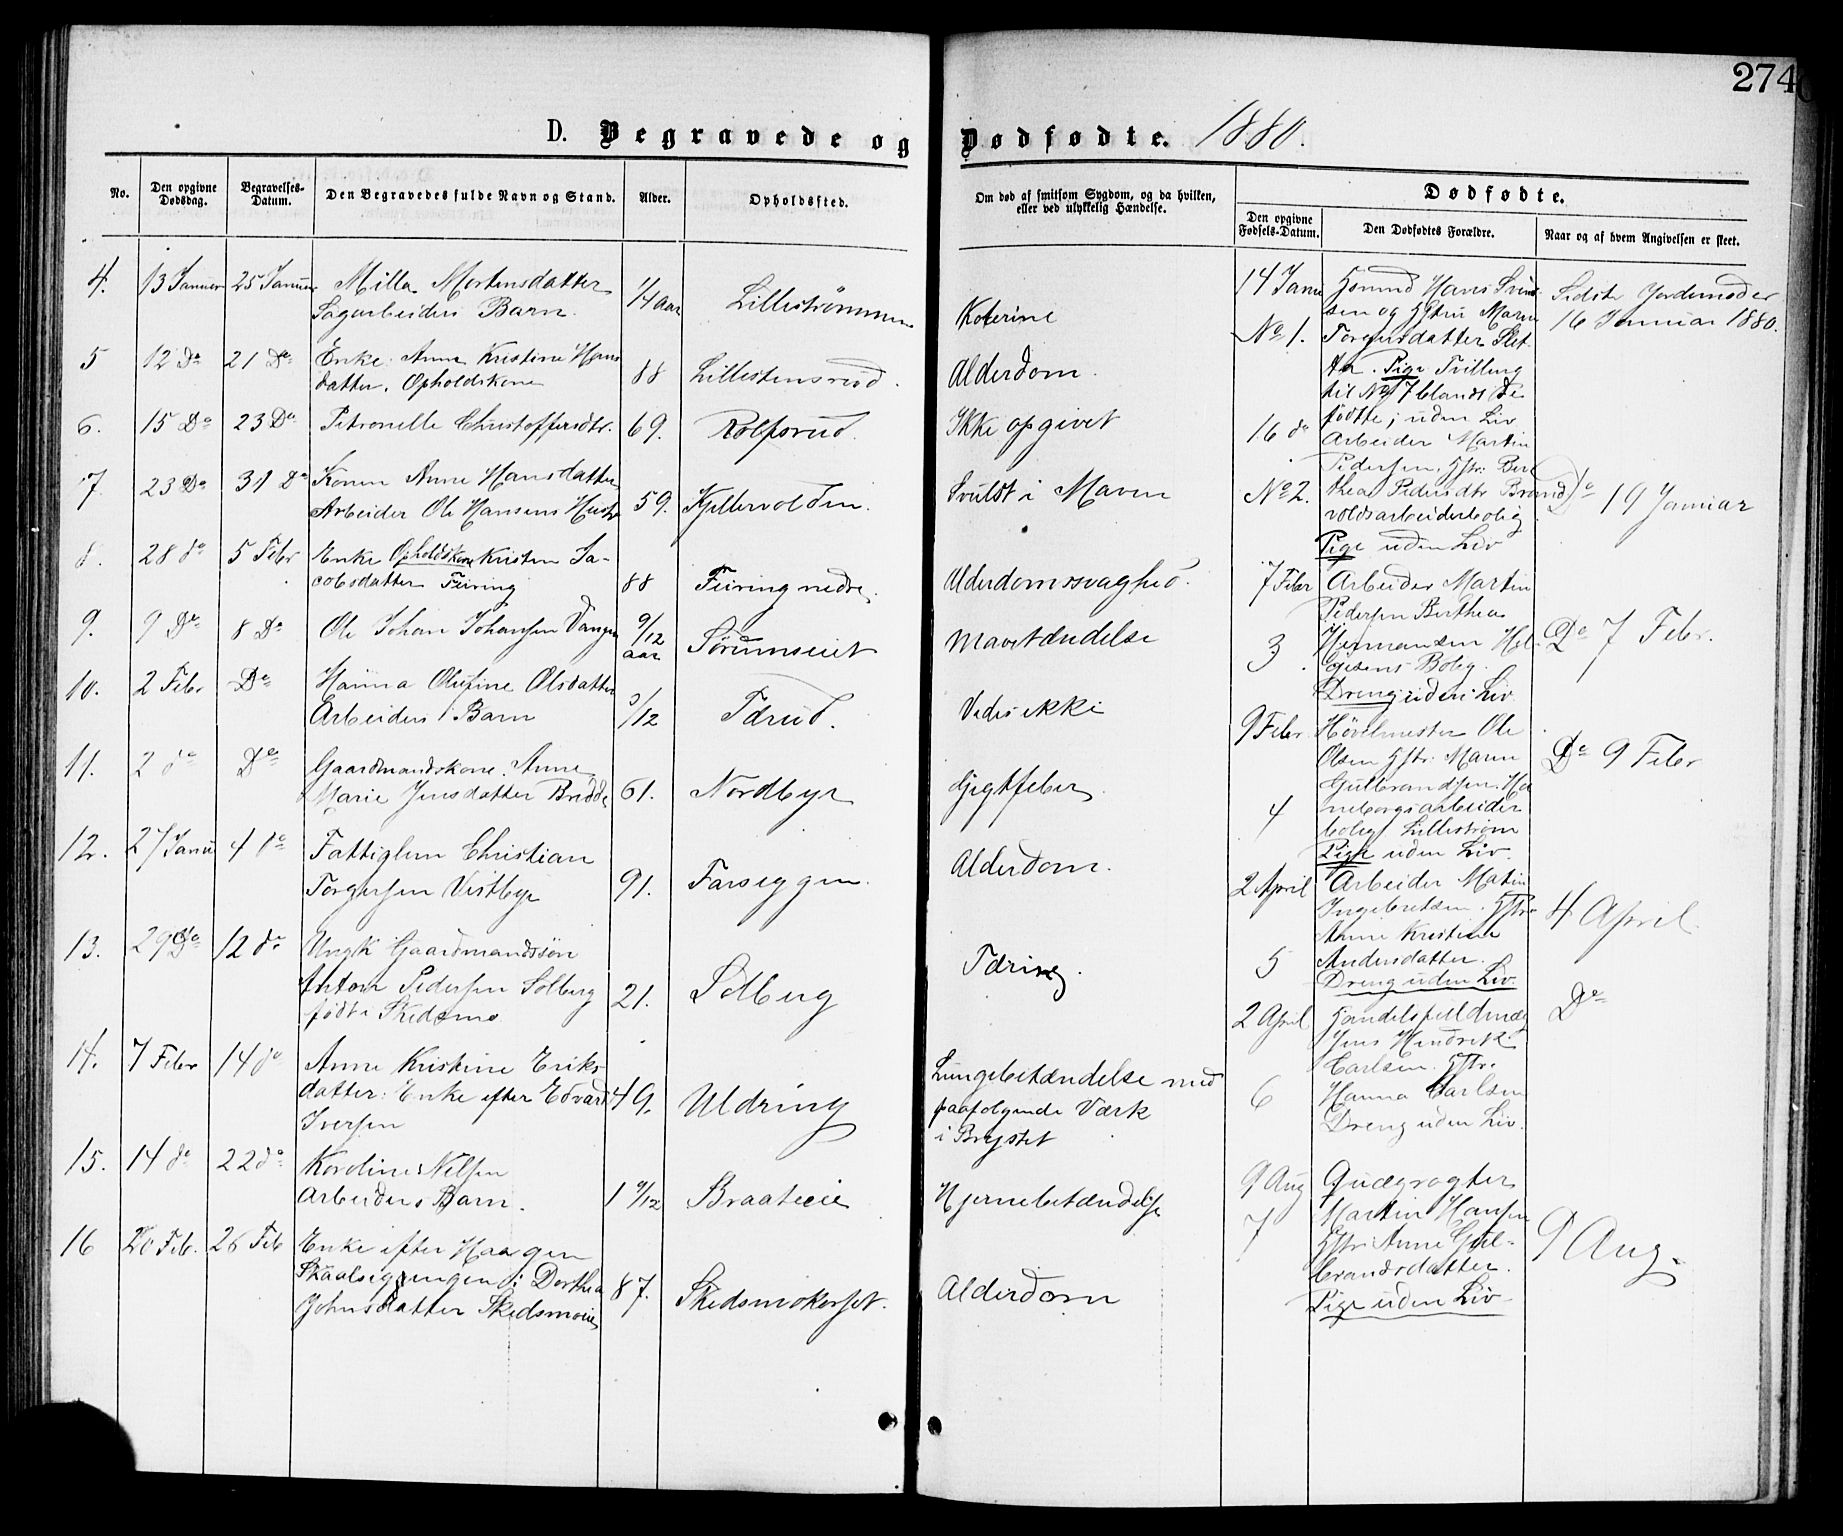 274
D. Begravede og Dødfødte. 1880.
No.
Den opgivne Dødsdag.
Begravelses-Datum.
Den Begravedes fulde Navn og Stand.
Alder.
Opholdssted.
Om død af smitsom Sygdom, og da hvilken,
eller ved ulykkelig Hændelse.
Dødfødte.
Den opgivne Fødsels-Datum.
Den Dødfødtes Forældre.
Naar og af hvem Angivelsen er skeet.
4. 13 Januar 25 Januar Milla Mortensdatter
Sagarbeiders Barn. 1/4 Aar Lillestrømmen Koterine
5 12 Do 21 Do Enke Anne Kristine Hans
datter. Opholdskone 88 Lillestensrud. Alderdom.
6. 15 Do 23 Do Petronelle Christoffersdtr. 69. Rolfsrud. Ikke opgivet
7 23 Do 31 Do Konen Anne Hansdatter
Arbeider Ole Hansens Hustr 59. Kjellervolden. Svulst i Maven
8. 28 do 5 Febr Enke Opholdskone Kristen Ja-
cobsdatter Fiiring 88 Fiiring nedre. Alderdomssvaghed.
9. 9 Do 8 Do Ole Johan Johansen Vangen 9/12
aar Sørumseiet Mavetændelse
10. 2 Febr Do Hanna Olufine Olsdatter
Arbeiders Barn 3/12 Tærud. Vides ikke
11. 2 do Do Gaardmandskone. Anne
Marie Jensdatter Brodde 61. Nordbye Gigtfeber
12. 27 Janu 4 do Fattiglem Christian
Torgersen Vestbye 91. Farseggen. Alderdom.
13. 29 Do 12 do Ungk Gaardmandssøn
Anton Pedersen Solberg
født i Skedsmo 21. Solberg Tæring.
14. 7 Febr 14 do Anne Kristine Eriks
datter: Enke efter Edvard
Iversen 49. Uldring Lungebetændelse med
paafølgende Værk
i Brystet
15. 14 do 22 do Karoline Nilsen
Arbeiders Barn. 1 9/12 Braateeie Hjernebetændelse
16 20 Feb. 26 Feb Enke efter Haagen
Skaalseggengen: Dorthea
Johnsdatter Skedsmoeie 87. Skedsmokorset. Alderdom
14 Janu Hans Svend
sen og Hstru Maren
No 1. Torgersdatter Slet
ta. Pige Tvilling
til No 7 blandt de
fødte; uden Liv
Sidste Jordemoder
16 Januar 1880.
16 do Arbeider Martin
Pedersen. Hstr: Ber
No 2. thea Pedersdtr Brænd
voldsarbeiderbolig
Pige uden Liv
Do 19 Januar
7 Febr Arbeider Martin
Pedersen Berthea
3 Hermansen Hel-
gesens Bolig.
Dreng uden Liv
Do 7 Febr.
9 Febr Høvelmester Ole
Olsen Hstr: Maren
Gulbrandsen. Ha
4 neborgsarbeider
bolig Lillestrøm
Pige uden Liv.
Do 9 Febr
2 April Arbeider Matin
Ingebretsen. Hstr.
Anne Kristine
5 Andersdatter.
Dreng uden Liv.
4 April.
2 April Handelsfuldmæg
Jens Hendrik
Carlsen. Hstr.
6 Hanna Carlsen
Dreng uden Liv.
Do
9 Aug Quægrøgter
7 Martin Hansen
Hstr: Anne Gul-
brandsdatter.
Pige uden Liv
9 Aug.